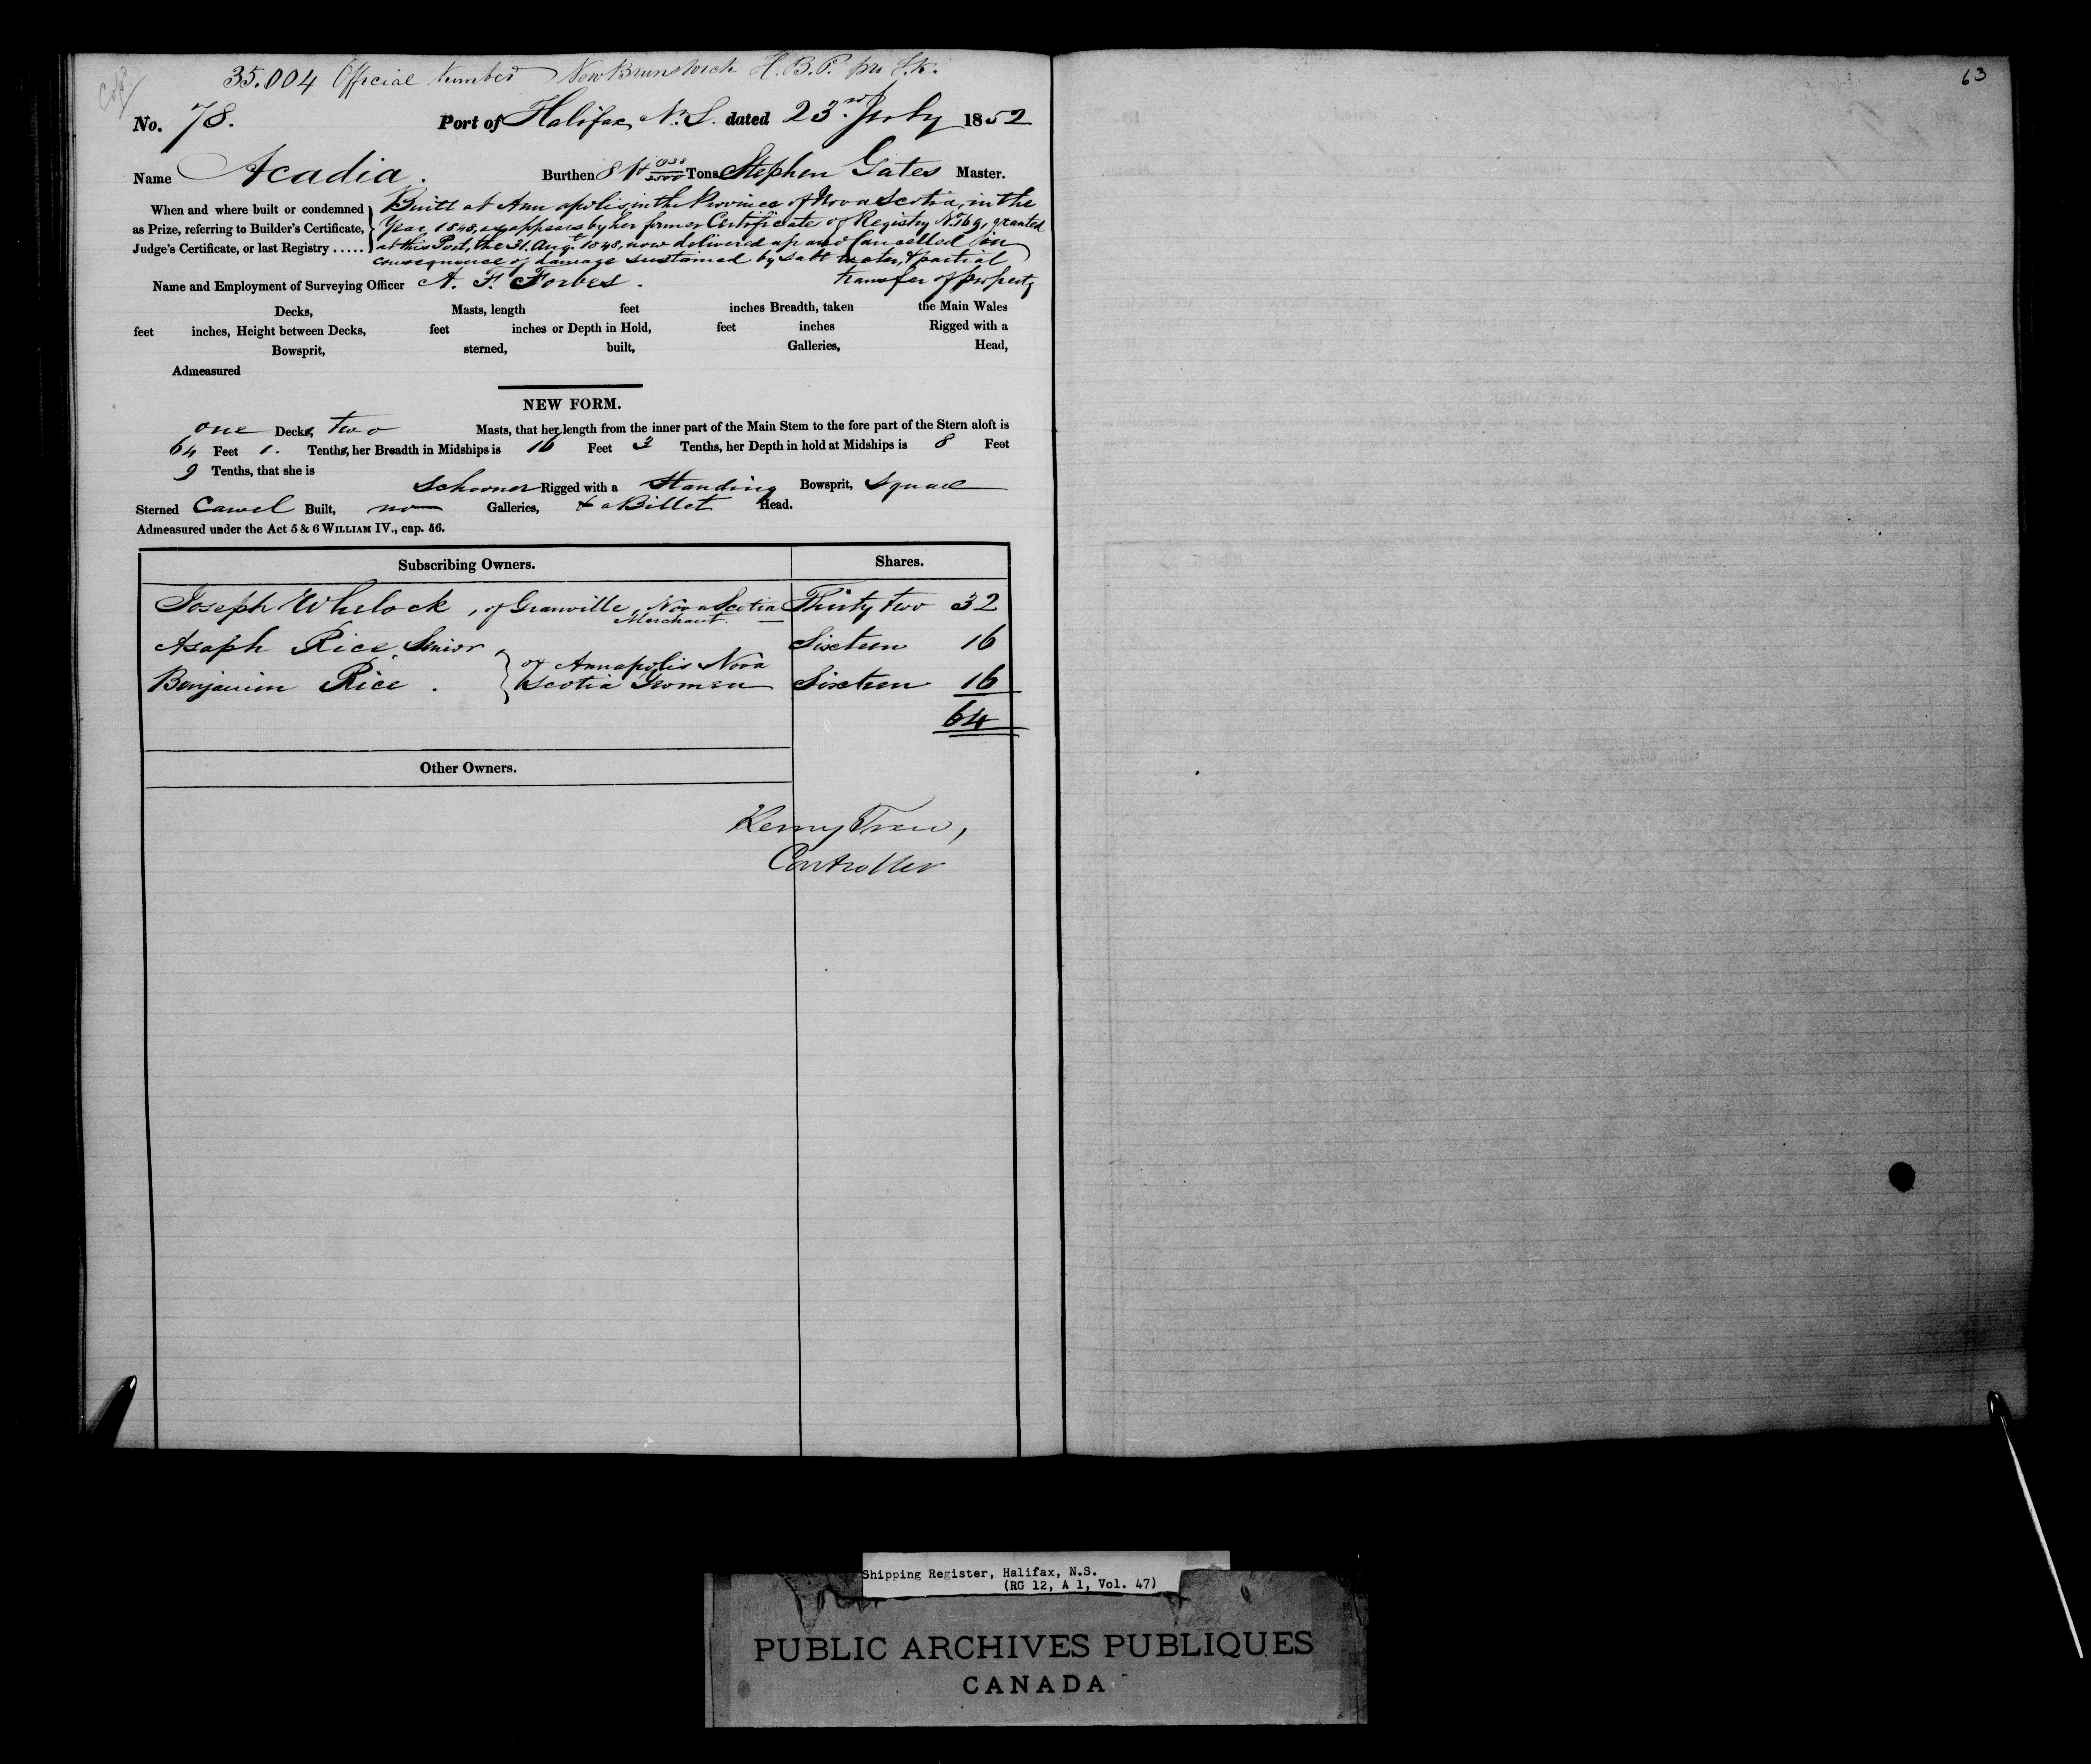 63
35.004 Official Number New Brunswick H.B.P.
No. 78. Port of Halifax, N.S. dated 23rd July 1852
Name Acadia. Burthen 81 Tons Stephen Gates Master.
When and where built or condemned as Prize, referring to Builder's Certificate, Judge's Certificate, or last Registry .....
Built at Annapolis, in the Province of Nova Scotia, in the
Year 1848, as appears by her former Certificate of Registry No. 169, granted
at this Port, the 31. Augt. 1848, now delivered up and Cancelled in
consequence of damage sustained by salt water, & partial
transfer of property
Name and Employment of Surveying Officer A. F. Forbes.
Decks, Masts, length feet inches Breadth, taken the Main Wales
feet inches, Height between Decks, feet inches or Depth in Hold, feet inches Rigged with a
Bowsprit, sterned, built, Galleries, Head,
Admeasured
NEW FORM.
one Decks, two Masts, that her length from the inner part of the Main Stem to the fore part of the Stern aloft is
64 Feet 1. Tenths, her Breadth in Midships is Feet 3 Tenths, her Depth in hold at Midships is 8 Feet
9 Tenths, that she is
Schooner Rigged with a Standing Bowsprit, Square
Sterned Carvel Built, no Galleries, & a Billet Head.
Admeasured under the Act 5 & 6 WILLIAM IV., cap. 56.
Subscribing Owners. Shares.
Joseph Whelock, of Granville, Nova Scotia Thirty two 32
Merchant.
Asaph Rice, Senior, Sixteen 16
of Annapolis Nova
Benjamin Rice. Scotia Yeomen Sixteen 16
64
Other Owners.
Controller
Shipping Register, Halifax, N.S.
(RG 12, A 1, Vol. 47)
PUBLIC ARCHIVES PUBLIQUES
CANADA